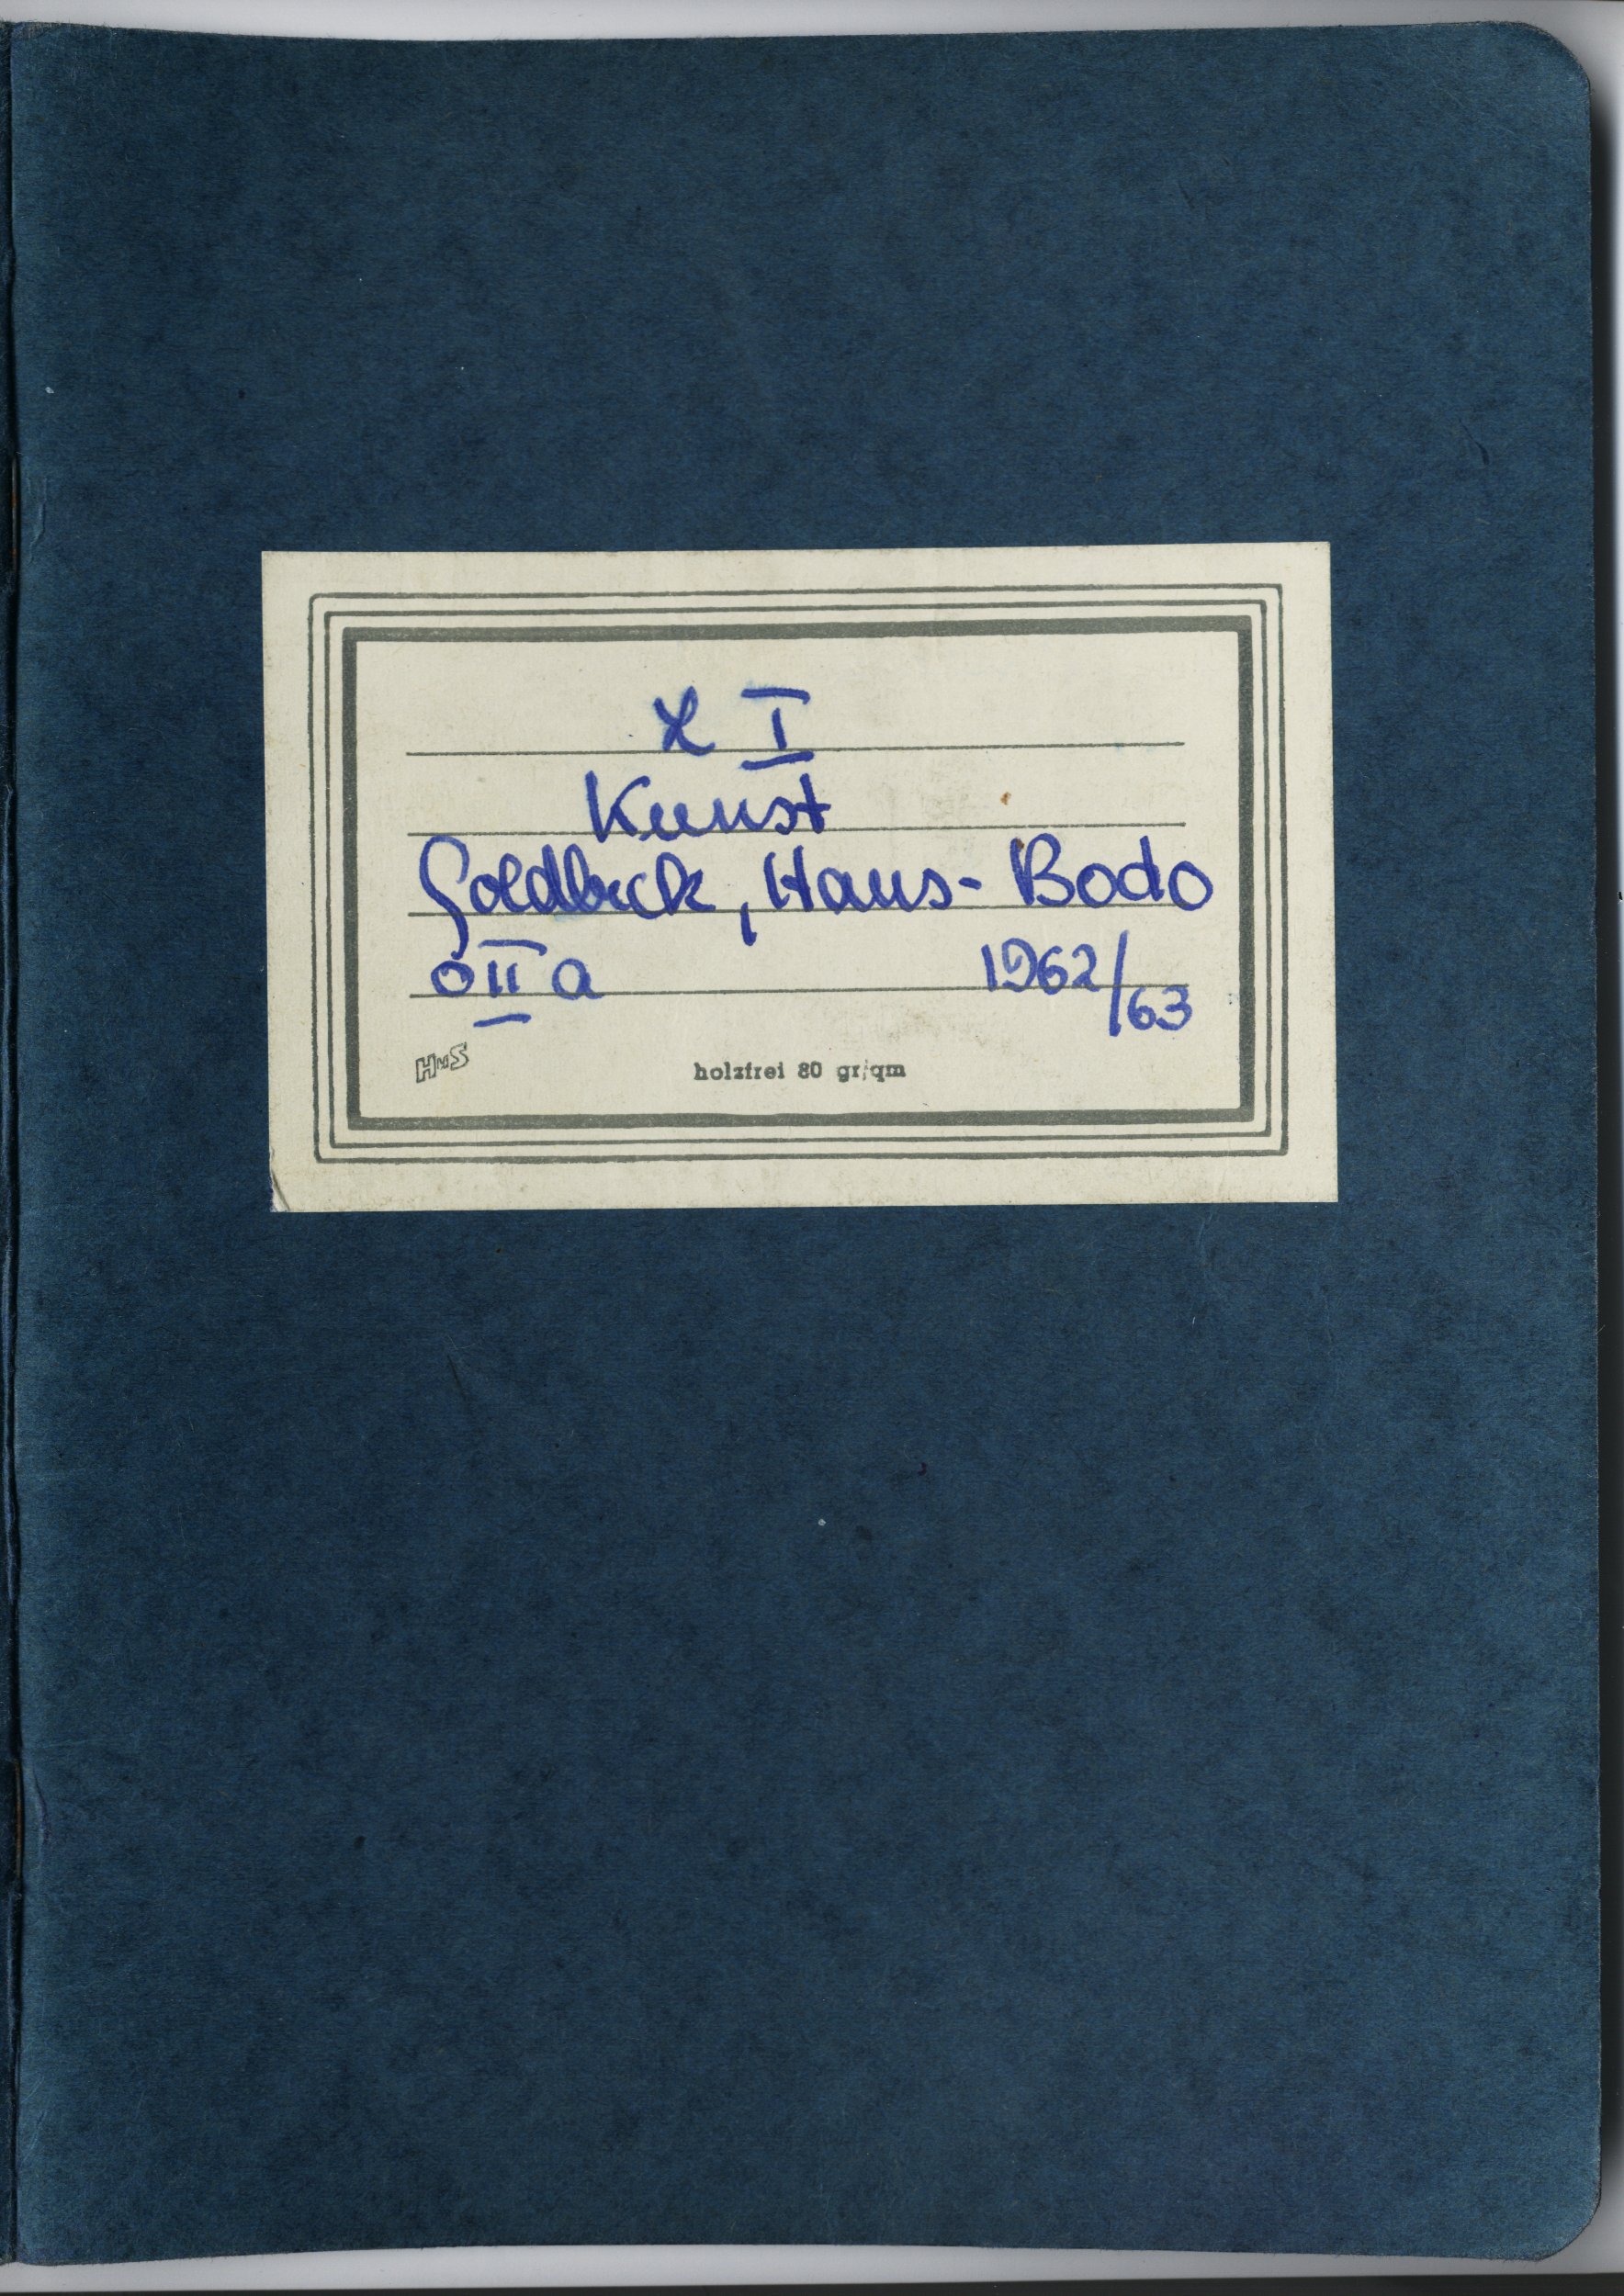 I
Kunst
Goldbeck, Hans-Bodo
OIIa 1962/63
HuS holzfrei 80 gr/qm